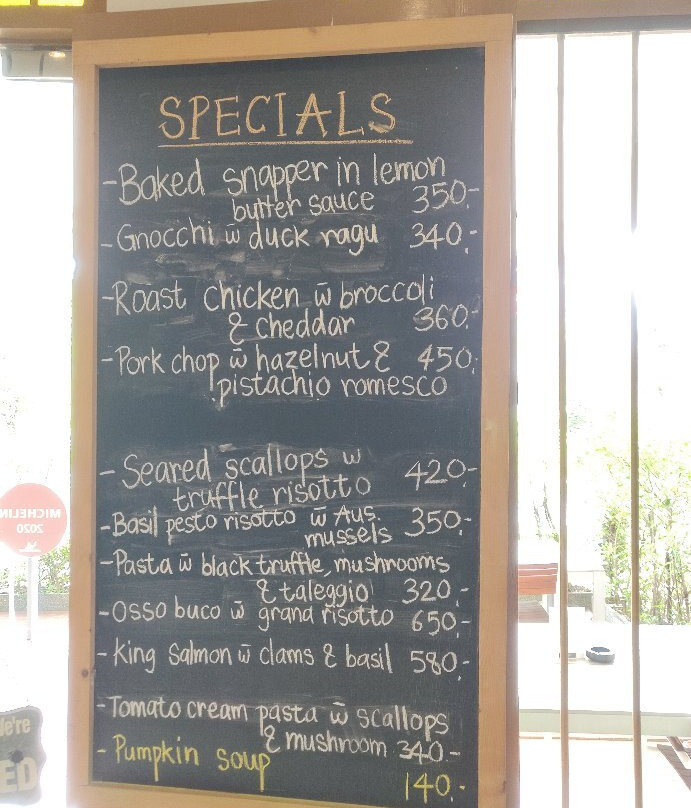 SPECIALS
-Baked snapper in lemon
butter sauce 350.-
-Gnocchi w̄ duck ragu 340.-
-Roast chicken w̄ broccoli
& cheddar 360.-
-Pork chop w̄ hazelnut & 450.
pistachio romesco
-Seared scallops w
truffle risotto 420.-
-Basil pesto risotto w̄ Aus
mussels 350.-
-Pasta w̄ black truffle, mushrooms
& taleggio 320.-
-Osso buco w̄ grand risotto 650.-
-King Salmon w̄ clams & basil 580.-
-Tomato cream pasta w̄ scallops
& mushroom 340.-
-Pumpkin soup
140.-
MICHELIN
2020
We're
ED